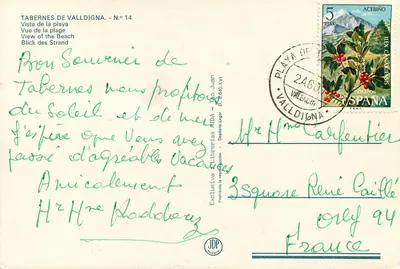 TABERNES DE VALLDIGNA. - N.º 14
Vista de la playa
Vue de la plage
View of the Beach
Blick des Strand
Bon Souvenir de
Tabernes nous profitons
du Soleil et de mer
J'espère que Vous avez
passé d'agréables Vacances
Amicalement
Mr Mme
Exclusivas Librerías
San Juan
Prohibida la reproducción
Depósito legal
JDP
5
PTAS
ACEBIÑO
ESPAÑA
PLAYA DE
2 AGO
VALENCIA
VALLDIGNA
Mr Mme Carpentier
3 Square René Caillé
Orly 94
France